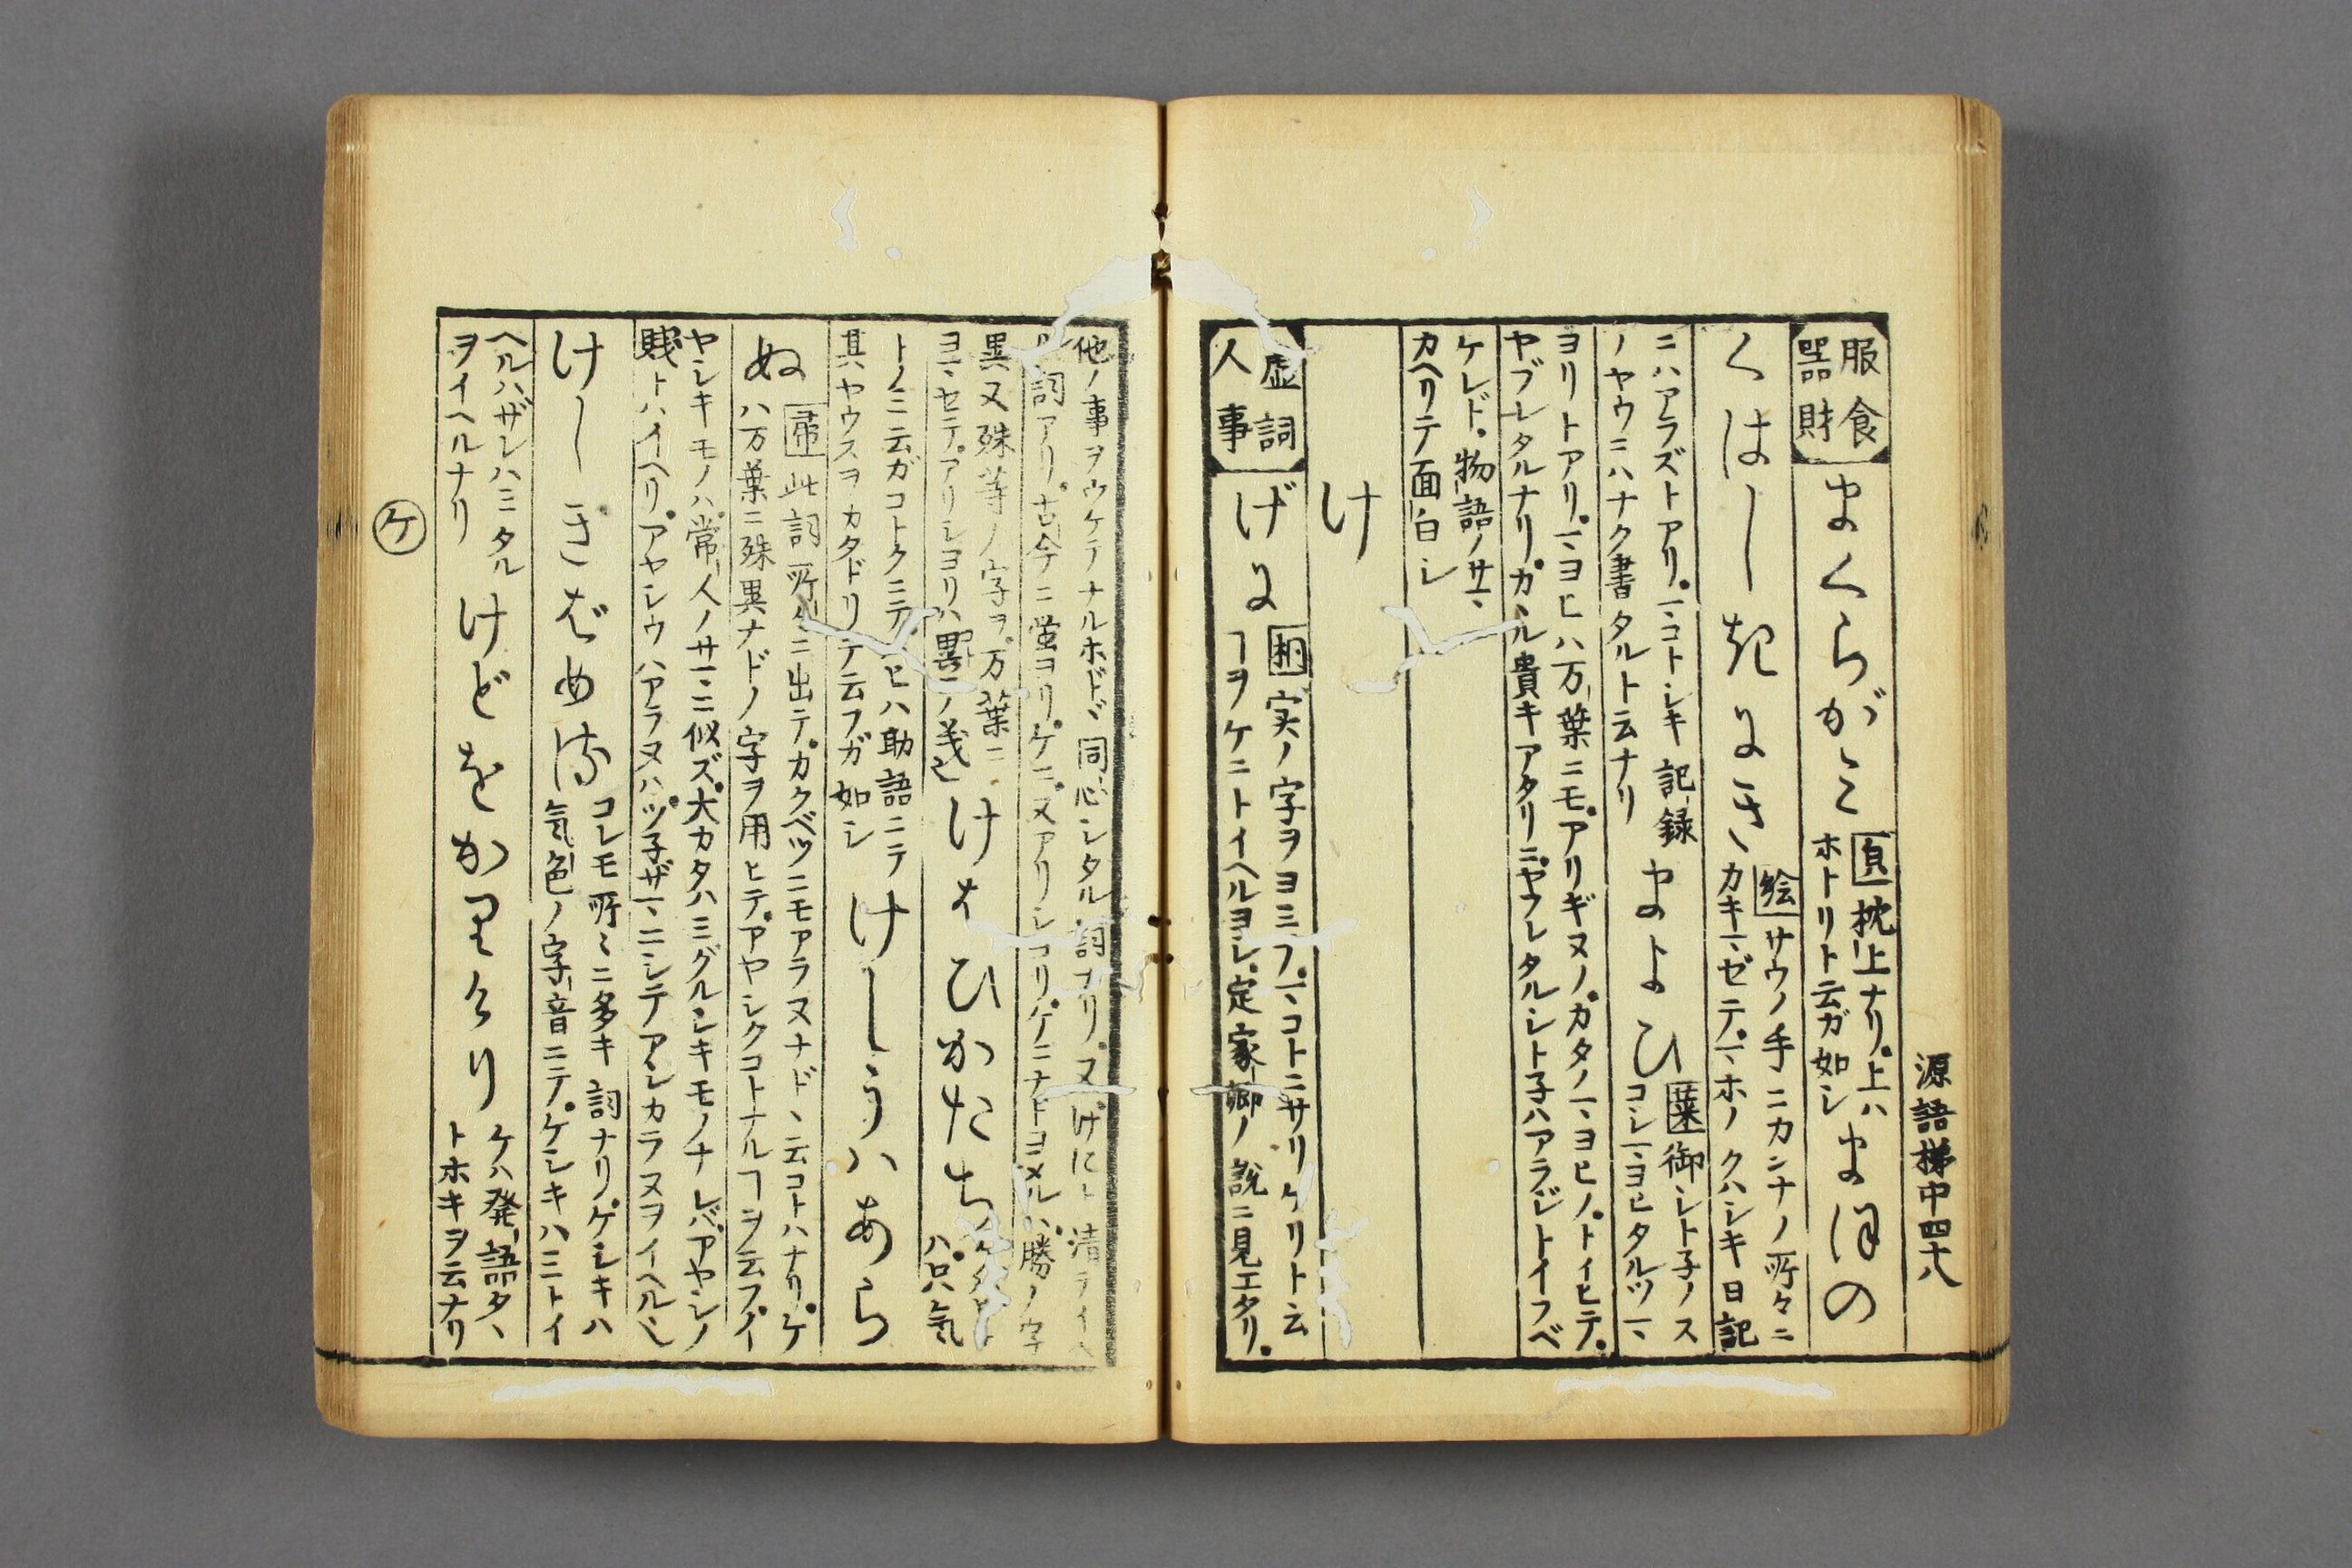 源語梯中四十八
服食
器財
まくらがミ
頁枕上ナリ上ハ
ホトリト云ガ如シ
まほの
くはしきにき
絵サウノ手ニカンナノ所々ニ
カキマゼテマホノクハシキ日記
ニハアラズトアリマコトシキ記録
ノヤウニハナク書タルト云ナリ
まよひ
葉御シトネノス
コシマヨヒタルツマ
ヨリトアリマヨヒハ万葉ニモアリギヌノカタノマヨヒノトイヒテ
ヤブレタルナリカヽル貴キアタリニヤブレタルシトネハアラジトイフベ
ケレド物語ノサマ
カヘリテ面白シ
け
虚詞
人事
げに
桐実ノ字ヲヨミフマコトニサリケリト云
ヿヲケニトイヘルヨシ定家卿ノ説ニ見エタリ
他ノ事ヲウケテナルホドヽ同心シタル詞ナリ又けにト清テイヘ
ル詞アリ古今ニ蛍ヨリケニ又アリシヨリケニナドヨメルハ勝ノ字
異又殊等ノ字ヲ万葉ニ
ヨマセテアリシヨリハ異ニノ義也
けはひかたち
ハ只気
トノミ云ガコトクニテヒハ助語ニテ
其ヤウスヲカタドリテ云フガ如シ
けしうハあら
ぬ
帚此詞所々ニ出テカクベツニモアラヌナドヽ云コトハナリケ
ハ万葉ニ殊異ナドノ字ヲ用ヒテアヤシクコトナルヿヲ云フイ
ヤシキモノハ常人ノサマニ似ズ大カタハミグルシキモノナレバアヤシノ
賎トハイヘリアヤシウハアラヌハツネザマニシテアシカラヌヲイヘル也
けしきばめる
コレモ所々ニ多キ詞ナリケシキハ
気色ノ字音ニテケシキハミトイ
ヘルハザレハミタル
ヲイヘルナリ
けどをかりけり
ケハ発語タヽ
トホキヲ云ナリ
ケ